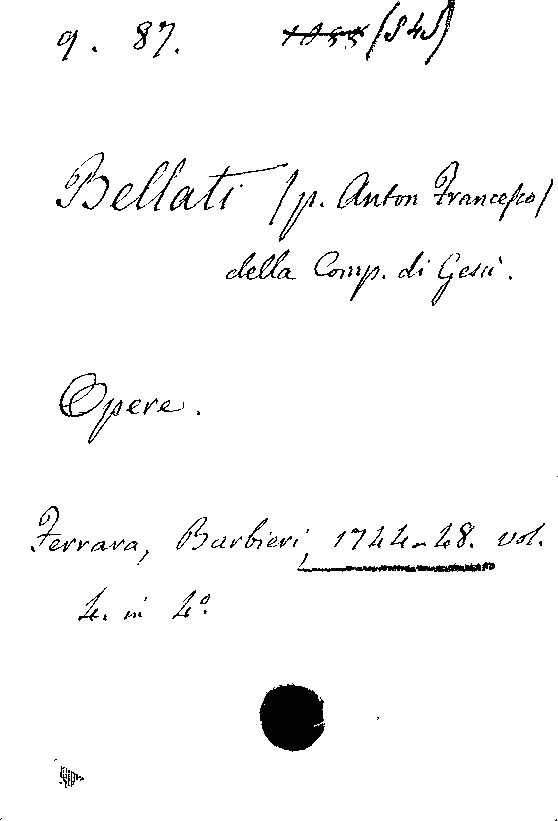 9. 87. (545)
Bellati (p. Anton Francesco)
della Comp. di Gesù.
Opere.
Ferrara, Barbieri, 1744-48. vol.
4. in 4º